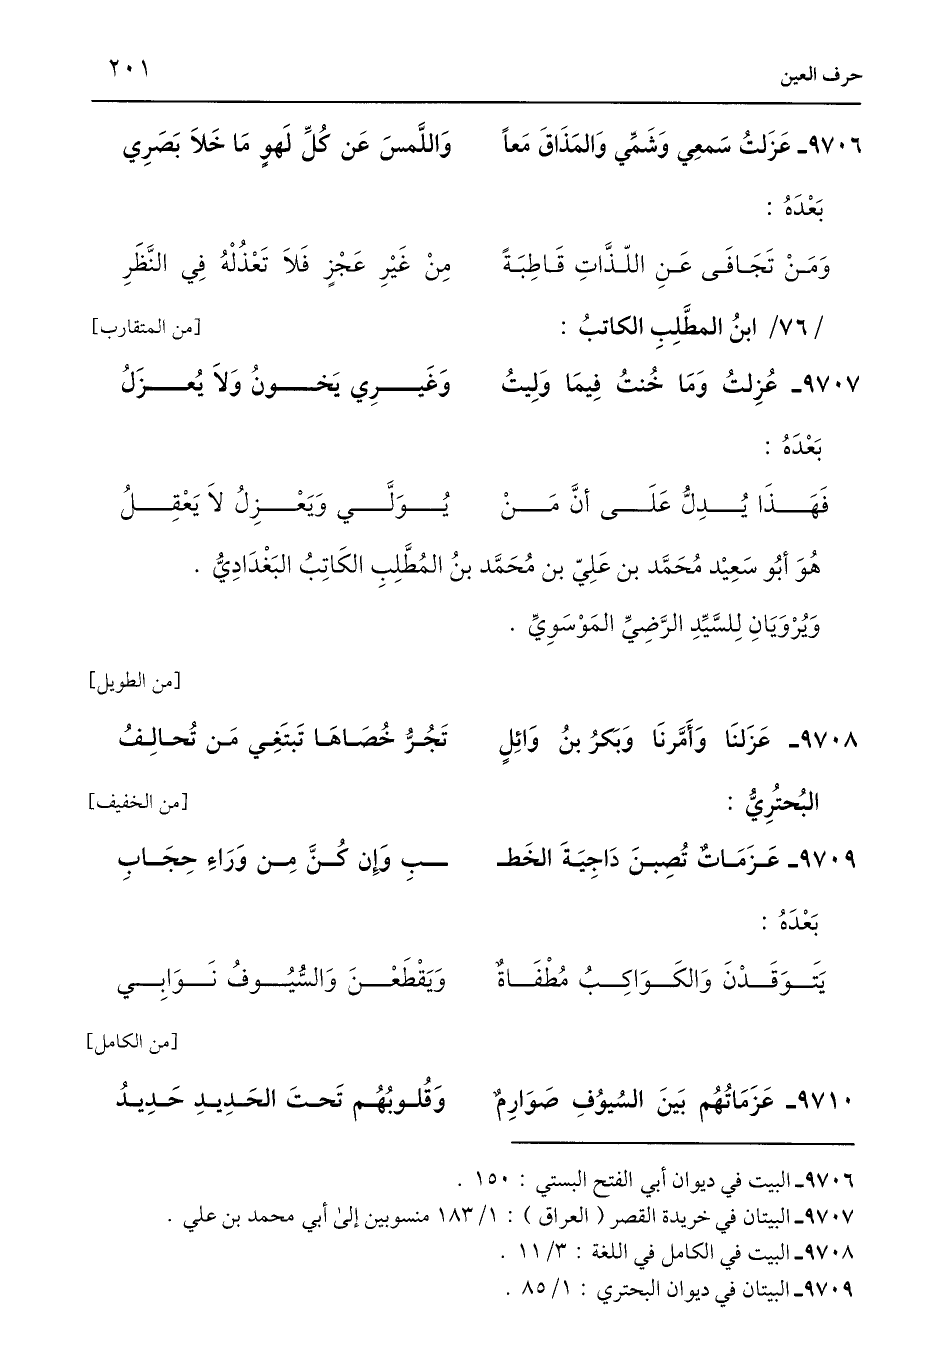 حرف العين ٢٠١
٩٧٠٦ـ عَزَلتُ سَمعِي وَشَمِّي وَالمَذَاقَ مَعاً وَاللَّمسَ عَن كُلِّ لَهوٍ مَا خَلاَ بَصَرِي
بَعْدَهُ :
وَمَنْ تَجَافَى عَنِ اللّذَّاتِ قَاطِبَةً مِنْ غَيْرِ عَجْزٍ فَلاَ تَعْذُلْهُ فِي النَّظَرِ
/ ٧٦/ ابنُ المطَّلِبِ الكاتبُ : [من المتقارب]
٩٧٠٧ـ عُزِلتُ وَمَا خُنتُ فِيمَا وَلِيتُ وَغَيرِي يَخُونُ وَلاَ يُعزَلُ
بَعْدَهُ :
فَهَذَا يُدِلُّ عَلَى أنَّ مَنْ يُوَلَّي وَيَعْزِلُ لاَ يَعْقِلُ
هُوَ أبُو سَعِيْد مُحَمَّد بن عَلِيّ بن مُحَمَّد بنُ المُطَّلِبِ الكَاتِبُ البَغْدَادِيُّ .
وَيُرْوَيَانِ لِلسَّيِّدِ الرَّضِيِّ المَوْسَوِيِّ .
[من الطويل]
٩٧٠٨ـ عَزَلنَا وَأَمَّرنَا وَبَكرُ بنُ وَائِلٍ تَجُرُّ خُصَاهَا تَبتَغِي مَن تُحالِفُ
البُحتُرِيُّ : [من الخفيف]
٩٧٠٩ـ عَزَمَاتٌ تُصِبنَ دَاجِيَةَ الخَطـ ـبِ وَإِن كُنَّ مِن وَرَاءِ حِجَابِ
بَعْدَهُ :
يَتَوَقَّدْنَ وَالكَوَاكِبُ مُطْفَاةٌ وَيَقْطَعْنَ وَالسُّيُوفُ نَوَابِي
[من الكامل]
٩٧١٠ـ عَزَمَاتُهُم بَينَ السُيوُفِ صَوَارِمٌ وَقُلوبُهُم تَحتَ الحَدِيدِ حَدِيدُ
٩٧٠٦ـ البيت في ديوان أبي الفتح البستي : ١٥٠ .
٩٧٠٧ـ البيتان في خريدة القصر ( العراق ) : ١/ ١٨٣ منسوبين إلىٰ أبي محمد بن علي .
٩٧٠٨ـ البيت في الكامل في اللغة : ٣/ ١١ .
٩٧٠٩ـ البيتان في ديوان البحتري : ١/ ٨٥ .